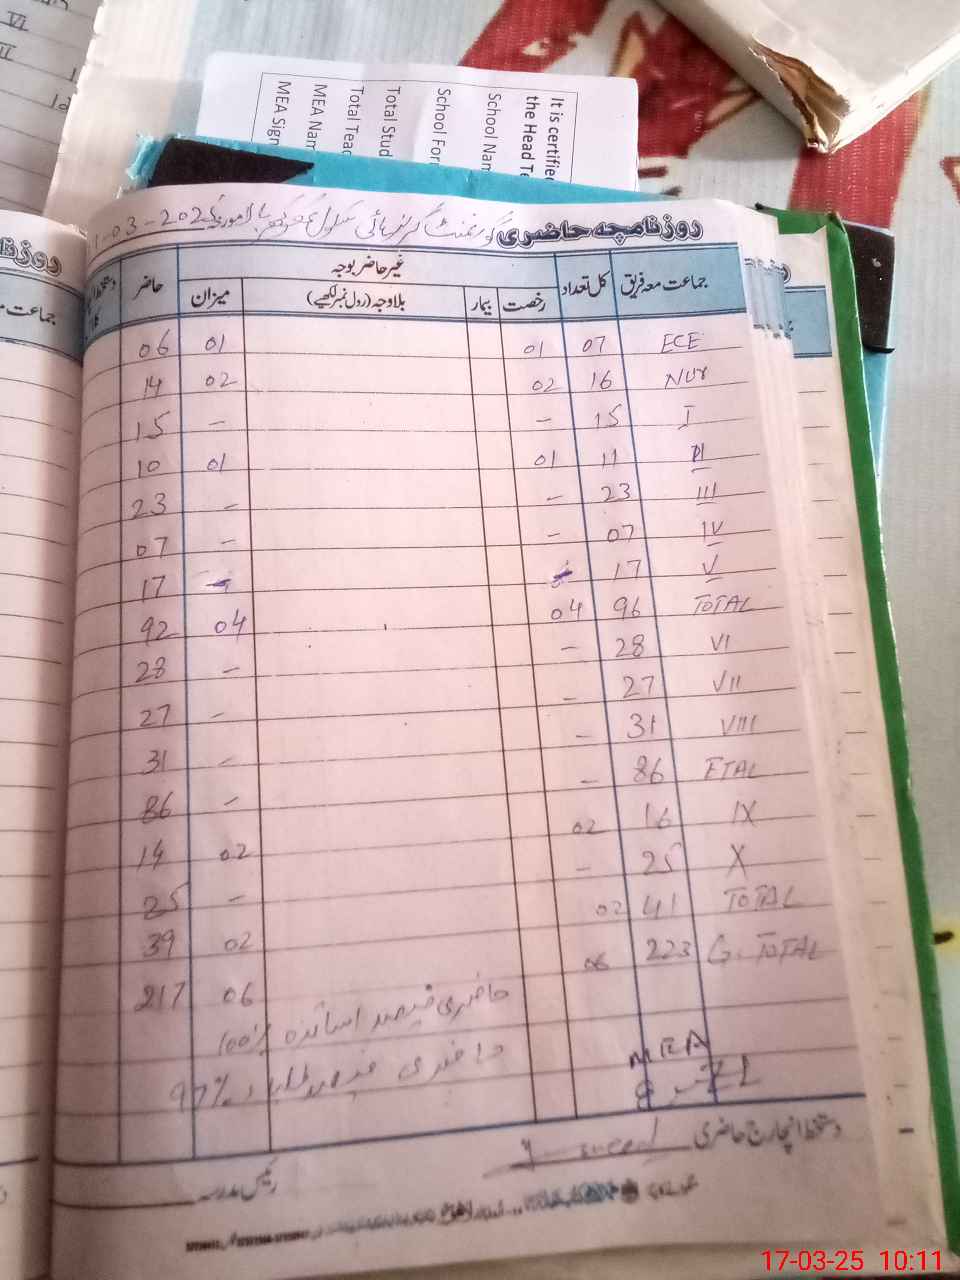 VI
II
It is certified
the Head Te
School Nam
School For
Total Stud
Total Teac
MEA Nam
MEA Sign
روزنامچہ حاضری گورنمنٹ گرلز ہائی سکول
جماعت معہ فریق کل تعداد غیر حاضر بوجہ حاضر
رخصت بیمار بلاوجہ (رول نمبر لکھیے) میزان
ECE 07 01 01 06
Nur 16 02 02 14
I 15 - - 15
II 11 01 01 10
III 23 - - 23
IV 07 - - 07
V 17 - - 17
TOTAL 96 04 04 92
VI 28 - - 28
VII 27 - - 27
VIII 31 - - 31
ETAL 86 - - 86
IX 16 02 02 14
X 25 - - 25
TOTAL 41 02 02 39
G. TOTAL 223 06 06 217
حاضری فیصد اساتذہ 100%
حاضری فیصد طلباء 97%
MEA
دستخط انچارج حاضری
رئیس مدرسہ
17-03-25 10:11